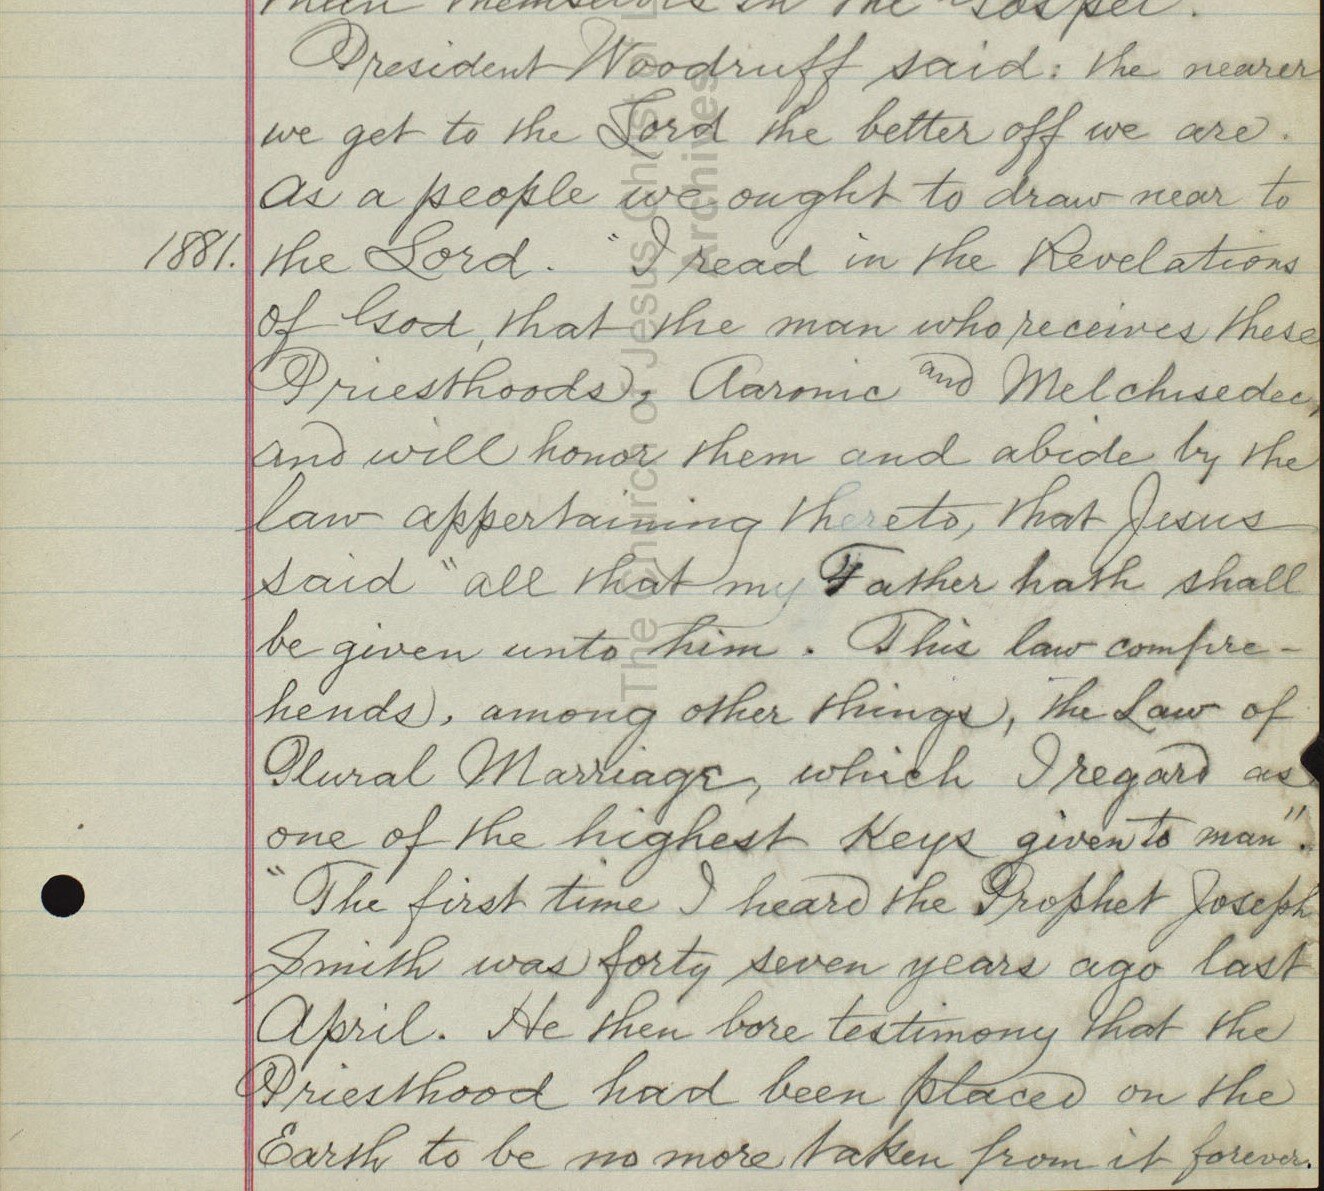 them themselves in the Gospel.
President Woodruff said: the nearer
we get to the Lord the better off we are.
As a people we ought to draw near to
1881. the Lord. "I read in the Revelations
of God, that the man who receives these
Priesthoods, Aaronic and Melchisedec,
and will honor them and abide by the
law appertaining thereto, that Jesus
said "all that my Father hath shall
be given unto him. This law compre-
hends, among other things, the Law of
Plural Marriage, which I regard as
one of the highest Keys given to man".
"The first time I heard the Prophet Joseph
Smith was forty seven years ago last
April. He then bore testimony that the
Priesthood had been placed on the
Earth to be no more taken from it forever.
The Church of Jesus Christ of L
Archives